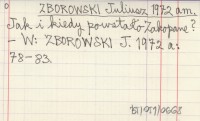 ZBOROWSKI Juliusz 1972 am.
Jak i kiedy powstało Zakopane?
– W: ZBOROWSKI J. 1972 a:
78–83.